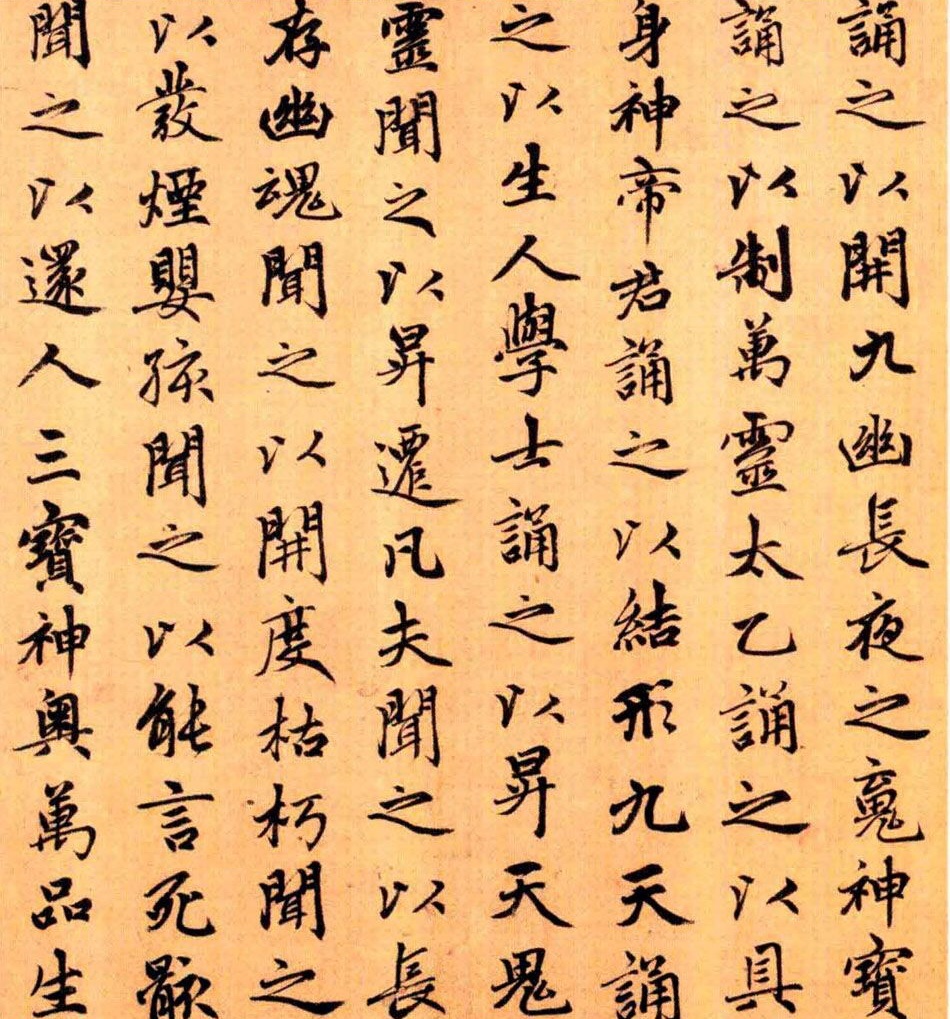 誦之以開九幽長夜之魂神寶
誦之以制萬靈太乙誦之以具
身神帝君誦之以結形九天誦
之以生人學士誦之以昇天鬼
靈聞之以昇遷凡夫聞之以長
存幽魂聞之以開度枯朽聞之
以發煙嬰孩聞之以能言死骸
聞之以還人三寶神奧萬品生